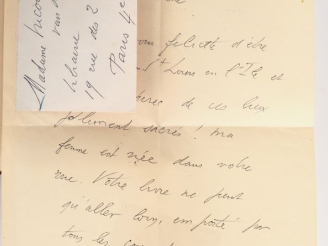 Madame Nico
van
libraire
19 rue des 2
Paris 4e
vous félicite d'être
St Louis en l'Ile et
de ces lieux
joliment sacrés ! Ma
femme est née dans votre
rue. Votre livre ne peut
qu'aller loin, emporté par
tous les